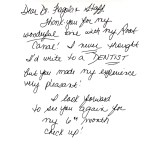 Dear Dr. Fagien & Staff
Thank you for my
wonderful time with my Root
Canal! I never thought
I'd write to a DENTIST
but you made my experience
very pleasant!
I look forward
to see you again for
my 6th month
check up!